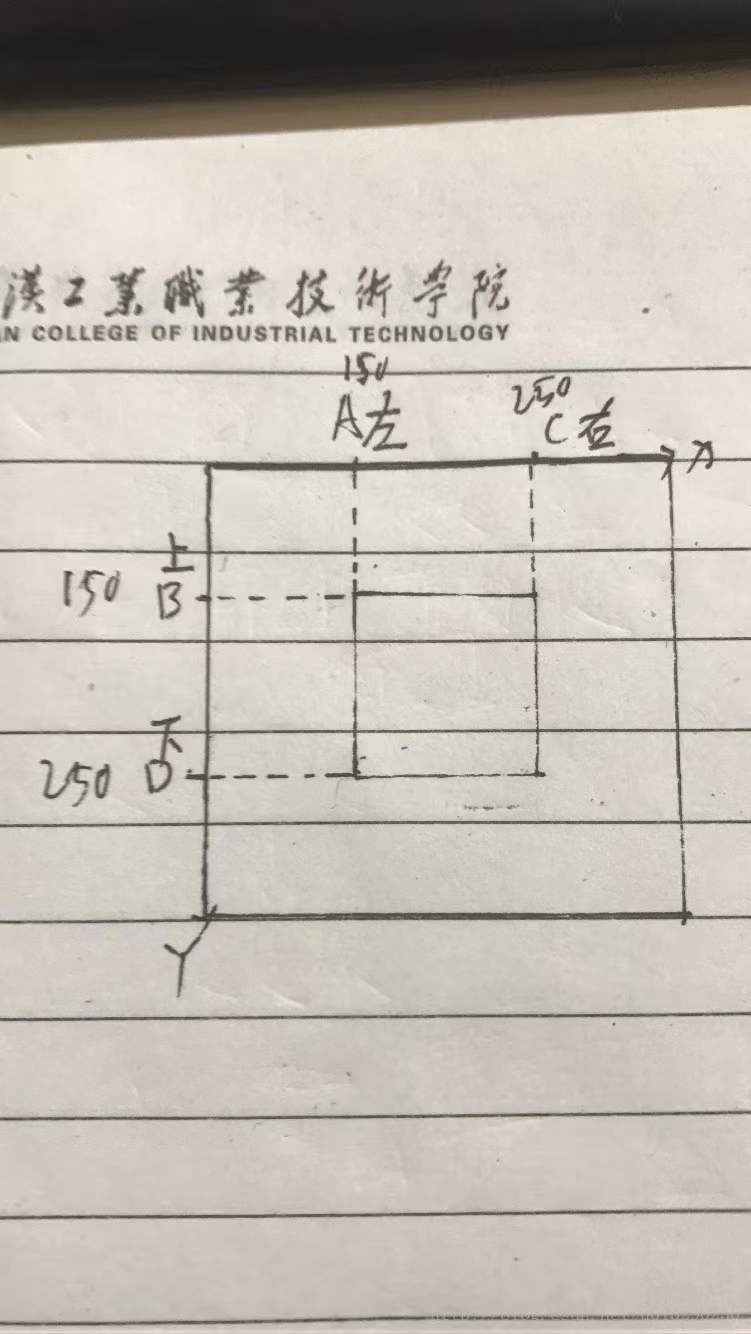 漢工業職業技術学院
N COLLEGE OF INDUSTRIAL TECHNOLOGY
150
250
A左
C右
X
上
150 B
下
250 D
Y